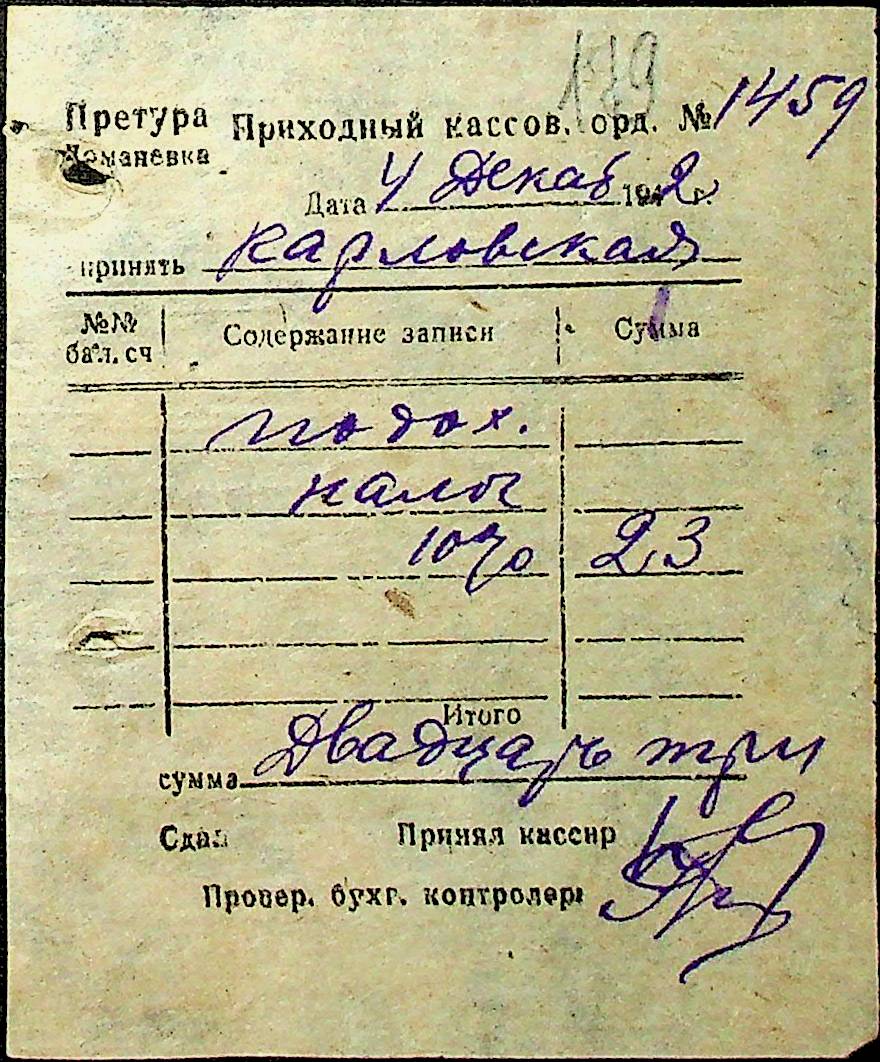 179
Претура Приходный кассов. орд. № 1459
Доманевка
Дата 4 Декаб 1942 г.
принять Карловская
№№ бал. сч Содержание записи Сумма
подох.
налог
10% 23
Итого
сумма Двадцать три
Сдал Принял кассир
Провер. бухг. контролер